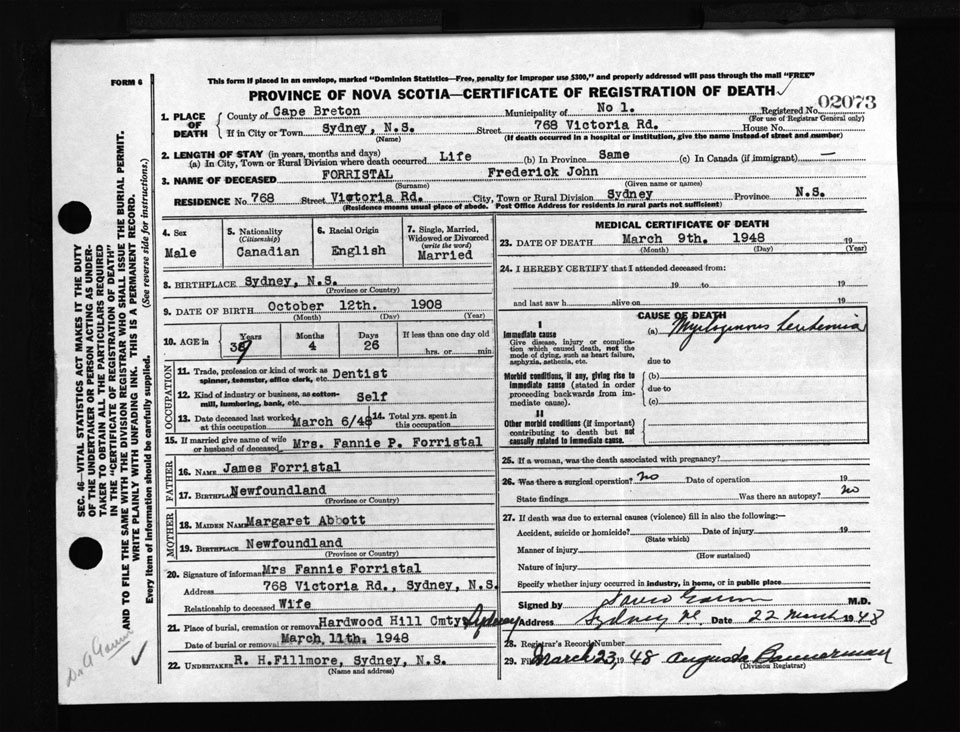 FORM 6
This form if placed in an envelope, marked "Dominion Statistics—Free, penalty for improper use $300," and properly addressed will pass through the mail "FREE"
PROVINCE OF NOVA SCOTIA—CERTIFICATE OF REGISTRATION OF DEATH
1. PLACE OF DEATH
County of Cape Breton Municipality of No 1. Registered No. 02073
(For use of Registrar General only)
If in City or Town Sydney, N.S. Street 768 Victoria Rd. House No.
(Name) (If death occurred in a hospital or institution, give the name instead of street and number)
2. LENGTH OF STAY (in years, months and days)
(a) In City, Town or Rural Division where death occurred Life (b) In Province Same (c) In Canada (if immigrant) —
3. NAME OF DECEASED FORRISTAL Frederick John
(Surname) (Given name or names)
RESIDENCE No 768 Street Victoria Rd. City, Town or Rural Division Sydney Province N.S.
(Residence means usual place of abode. Post Office Address for residents in rural parts not sufficient)
4. Sex
Male
5. Nationality
(Citizenship)
Canadian
6. Racial Origin
English
7. Single, Married, Widowed or Divorced
(write the word)
Married
8. BIRTHPLACE Sydney, N.S.
(Province or Country)
9. DATE OF BIRTH October 12th. 1908
(Month) (Day) (Year)
10. AGE in
Years Months Days If less than one day old
39 4 26 hrs. or min.
OCCUPATION
11. Trade, profession or kind of work as
spinner, teamster, office clerk, etc. Dentist
12. Kind of industry or business, as cotton-
mill, lumbering, bank, etc. Self
13. Date deceased last worked
at this occupation March 6/48
14. Total yrs. spent in
this occupation
15. If married give name of wife
or husband of deceased Mrs. Fannie P. Forristal
FATHER
16. NAME James Forristal
17. BIRTHPLACE Newfoundland
(Province or Country)
MOTHER
18. MAIDEN NAME Margaret Abbott
19. BIRTHPLACE Newfoundland
(Province or Country)
20. Signature of informant Mrs Fannie Forristal
Address 768 Victoria Rd., Sydney, N.S.
Relationship to deceased Wife
21. Place of burial, cremation or removal Hardwood Hill Cmty Sydney
Date of burial or removal March 11th. 1948
22. UNDERTAKER R. H.Fillmore, Sydney, N.S.
(Name and address)
MEDICAL CERTIFICATE OF DEATH
23. DATE OF DEATH March 9th. 1948 19
(Month) (Day) (Year)
24. I HEREBY CERTIFY that I attended deceased from:
19 to 19
and last saw h alive on 19
CAUSE OF DEATH
I
Immediate cause
Give disease, injury or complica-
tion which caused death, not the
mode of dying, such as heart failure,
asphyxia, asthenia, etc.
(a) Myelogenous Leukemia
due to
Morbid conditions, if any, giving rise to
immediate cause (stated in order
proceeding backwards from im-
mediate cause).
(b)
due to
(c)
II
Other morbid conditions (if important)
contributing to death but not
causally related to immediate cause.
25. If a woman, was the death associated with pregnancy?
26. Was there a surgical operation? no Date of operation 19
State findings Was there an autopsy? no
27. If death was due to external causes (violence) fill in also the following:—
Accident, suicide or homicide? Date of injury 19
(State which)
Manner of injury
(How sustained)
Nature of injury
Specify whether injury occurred in industry, in home, or in public place
Signed by M.D.
Address Sydney Date 22 March 1948
28. Registrar's Record Number
29. March 23 1948 Augusta Bannerman
(Division Registrar)
SEC. 46—VITAL STATISTICS ACT MAKES IT THE DUTY
OF THE UNDERTAKER OR PERSON ACTING AS UNDER-
TAKER TO OBTAIN ALL THE PARTICULARS REQUIRED
IN THE "CERTIFICATE OF REGISTRATION OF DEATH"
AND TO FILE THE SAME WITH THE DIVISION REGISTRAR WHO SHALL ISSUE THE BURIAL PERMIT.
WRITE PLAINLY WITH UNFADING INK. THIS IS A PERMANENT RECORD.
Every item of information should be carefully supplied. (See reverse side for instructions.)